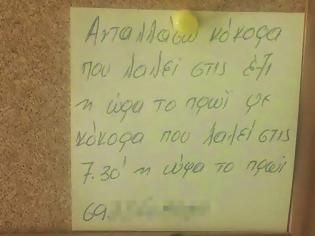 Ανταλλάσω κόκορα
που λαλεί στις έξι
η ώρα το πρωί με
κόκορα που λαλεί στις
7.30' η ώρα το πρωί
69